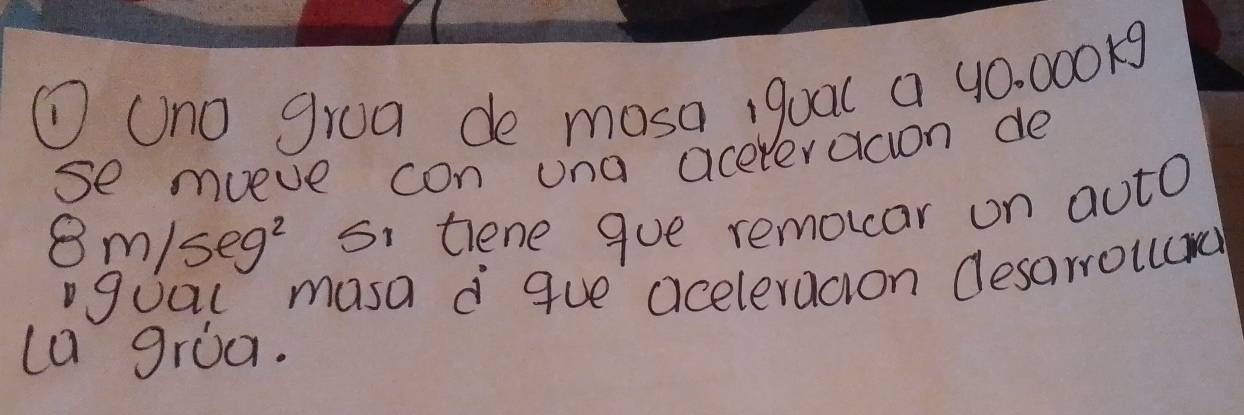 ① Una grua de masa igual a 40.000 kg
se mueve con una aceleracion de
8 m/seg² si tiene que remolcar un auto
igual masa d que aceleracion desarrollara
la grúa.